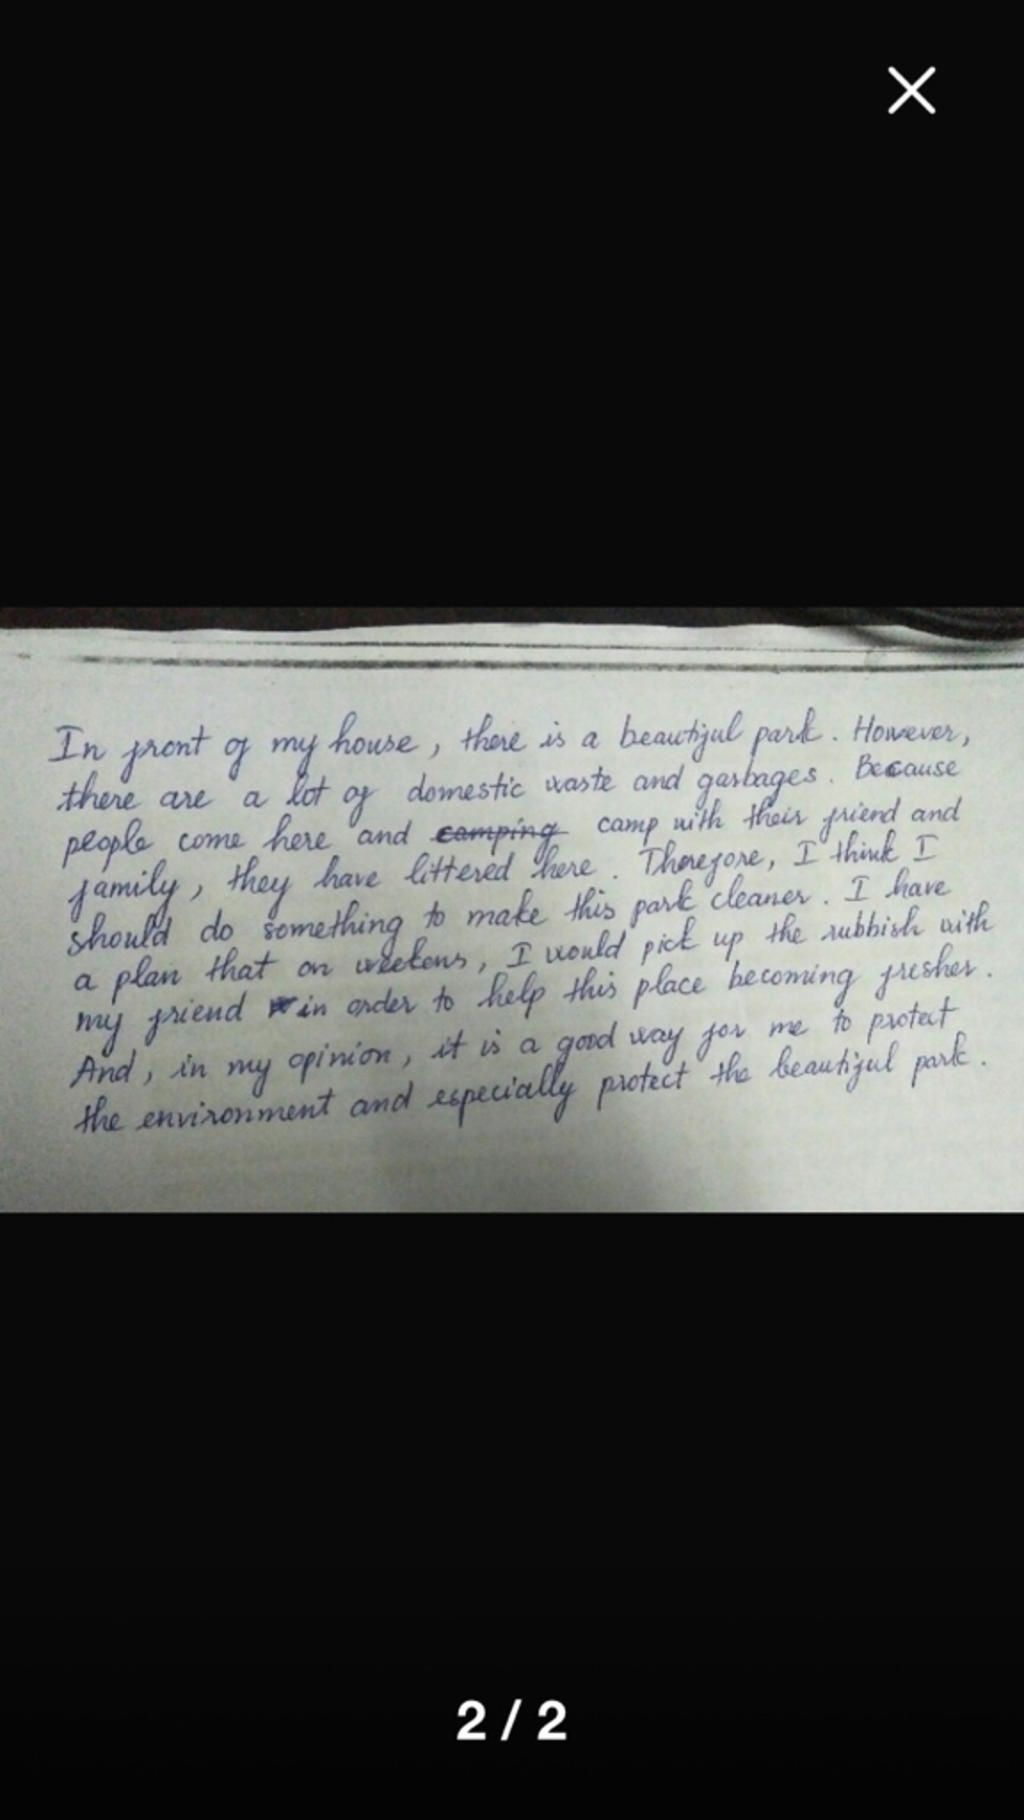 In front of my house, there is a beautiful park. However,
there are a lot of domestic waste and garbages. Because
people come here and camping camp with their friend and
family, they have littered here. Therefore, I think I
should do something to make this park cleaner. I have
a plan that on weekens, I would pick up the rubbish with
my friend in order to help this place becoming fresher.
And, in my opinion, it is a good way for me to protect
the environment and especially protect the beautiful park.
2 / 2